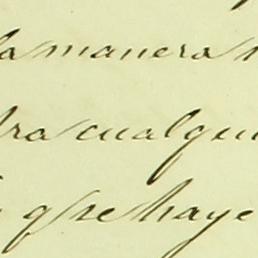 la manera
tra cualqui
q.e se haye